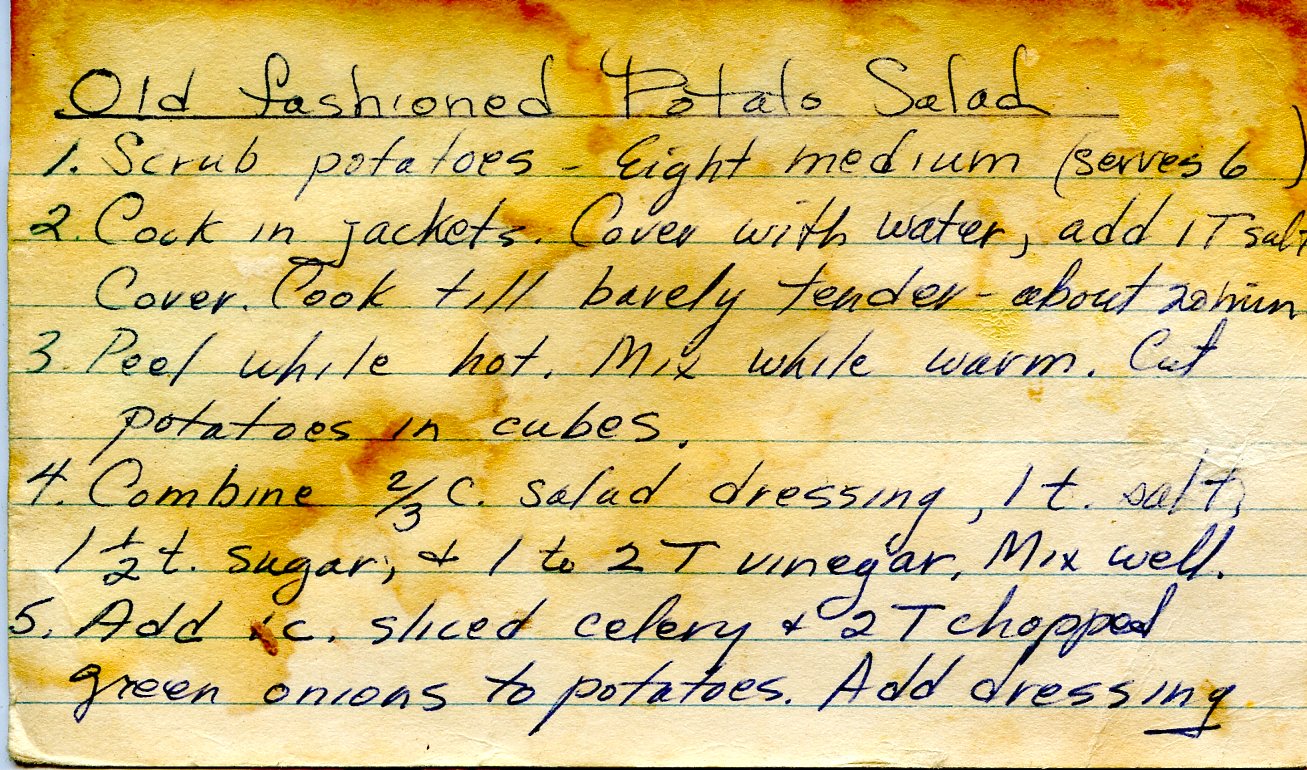 Old fashioned Potato Salad
1. Scrub potatoes - Eight medium (serves 6)
2. Cook in jackets. Cover with water, add 1T salt
Cover. Cook till barely tender - about 20 min
3. Peel while hot. Mix while warm. Cut
potatoes in cubes.
4. Combine 2/3 c. salad dressing, 1 t. salt,
1 1/2 t. sugar, & 1 to 2 T vinegar. Mix well.
5. Add 1 c. sliced celery & 2 T chopped
green onions to potatoes. Add dressing